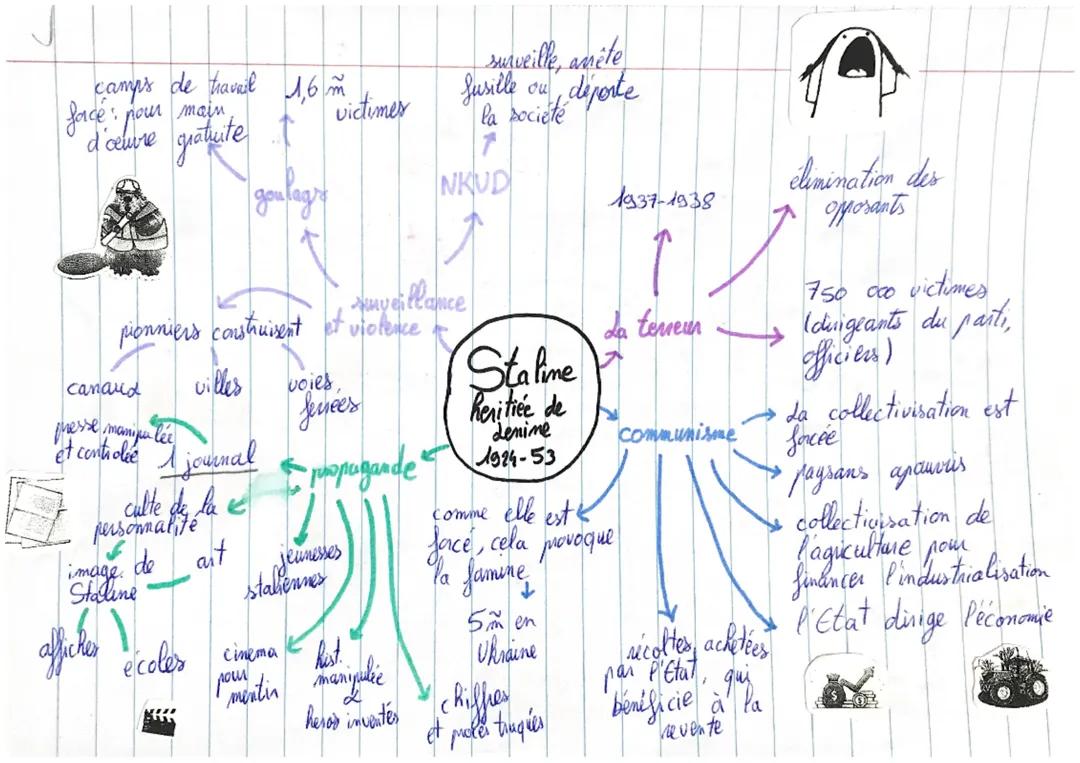 Staline
heritiée de
Lenine
1924-53
surveillance
et violence
goulags
camps de travail
forcé : pour main
d'œuvre gratuite
1,6 m̃
victimes
NKUD
surveille, arrête,
fusille ou déporte
la société
pionniers construisent
canaux
villes
voies
ferrées
La terreur
1937-1938
élimination des
opposants
750 000 victimes
(dirigeants du parti,
officiers)
communisme
La collectivisation est
forcée
paysans apauvris
collectivisation de
l'agriculture pour
financer l'industrialisation
l'Etat dirige l'économie
récoltes achetées
par l'Etat, qui
bénéficie à la
revente
comme elle est
forcé, cela provoque
la famine
5 m̃ en
Ukraine
propagande
1 journal
presse manipulée
et controlée
culte de la
personnalité
image de
Staline
art
affiches
écoles
jeunesses
staliennes
cinema
pour
mentir
hist.
manipulée
&
heros inventés
chiffres
et procès truqués